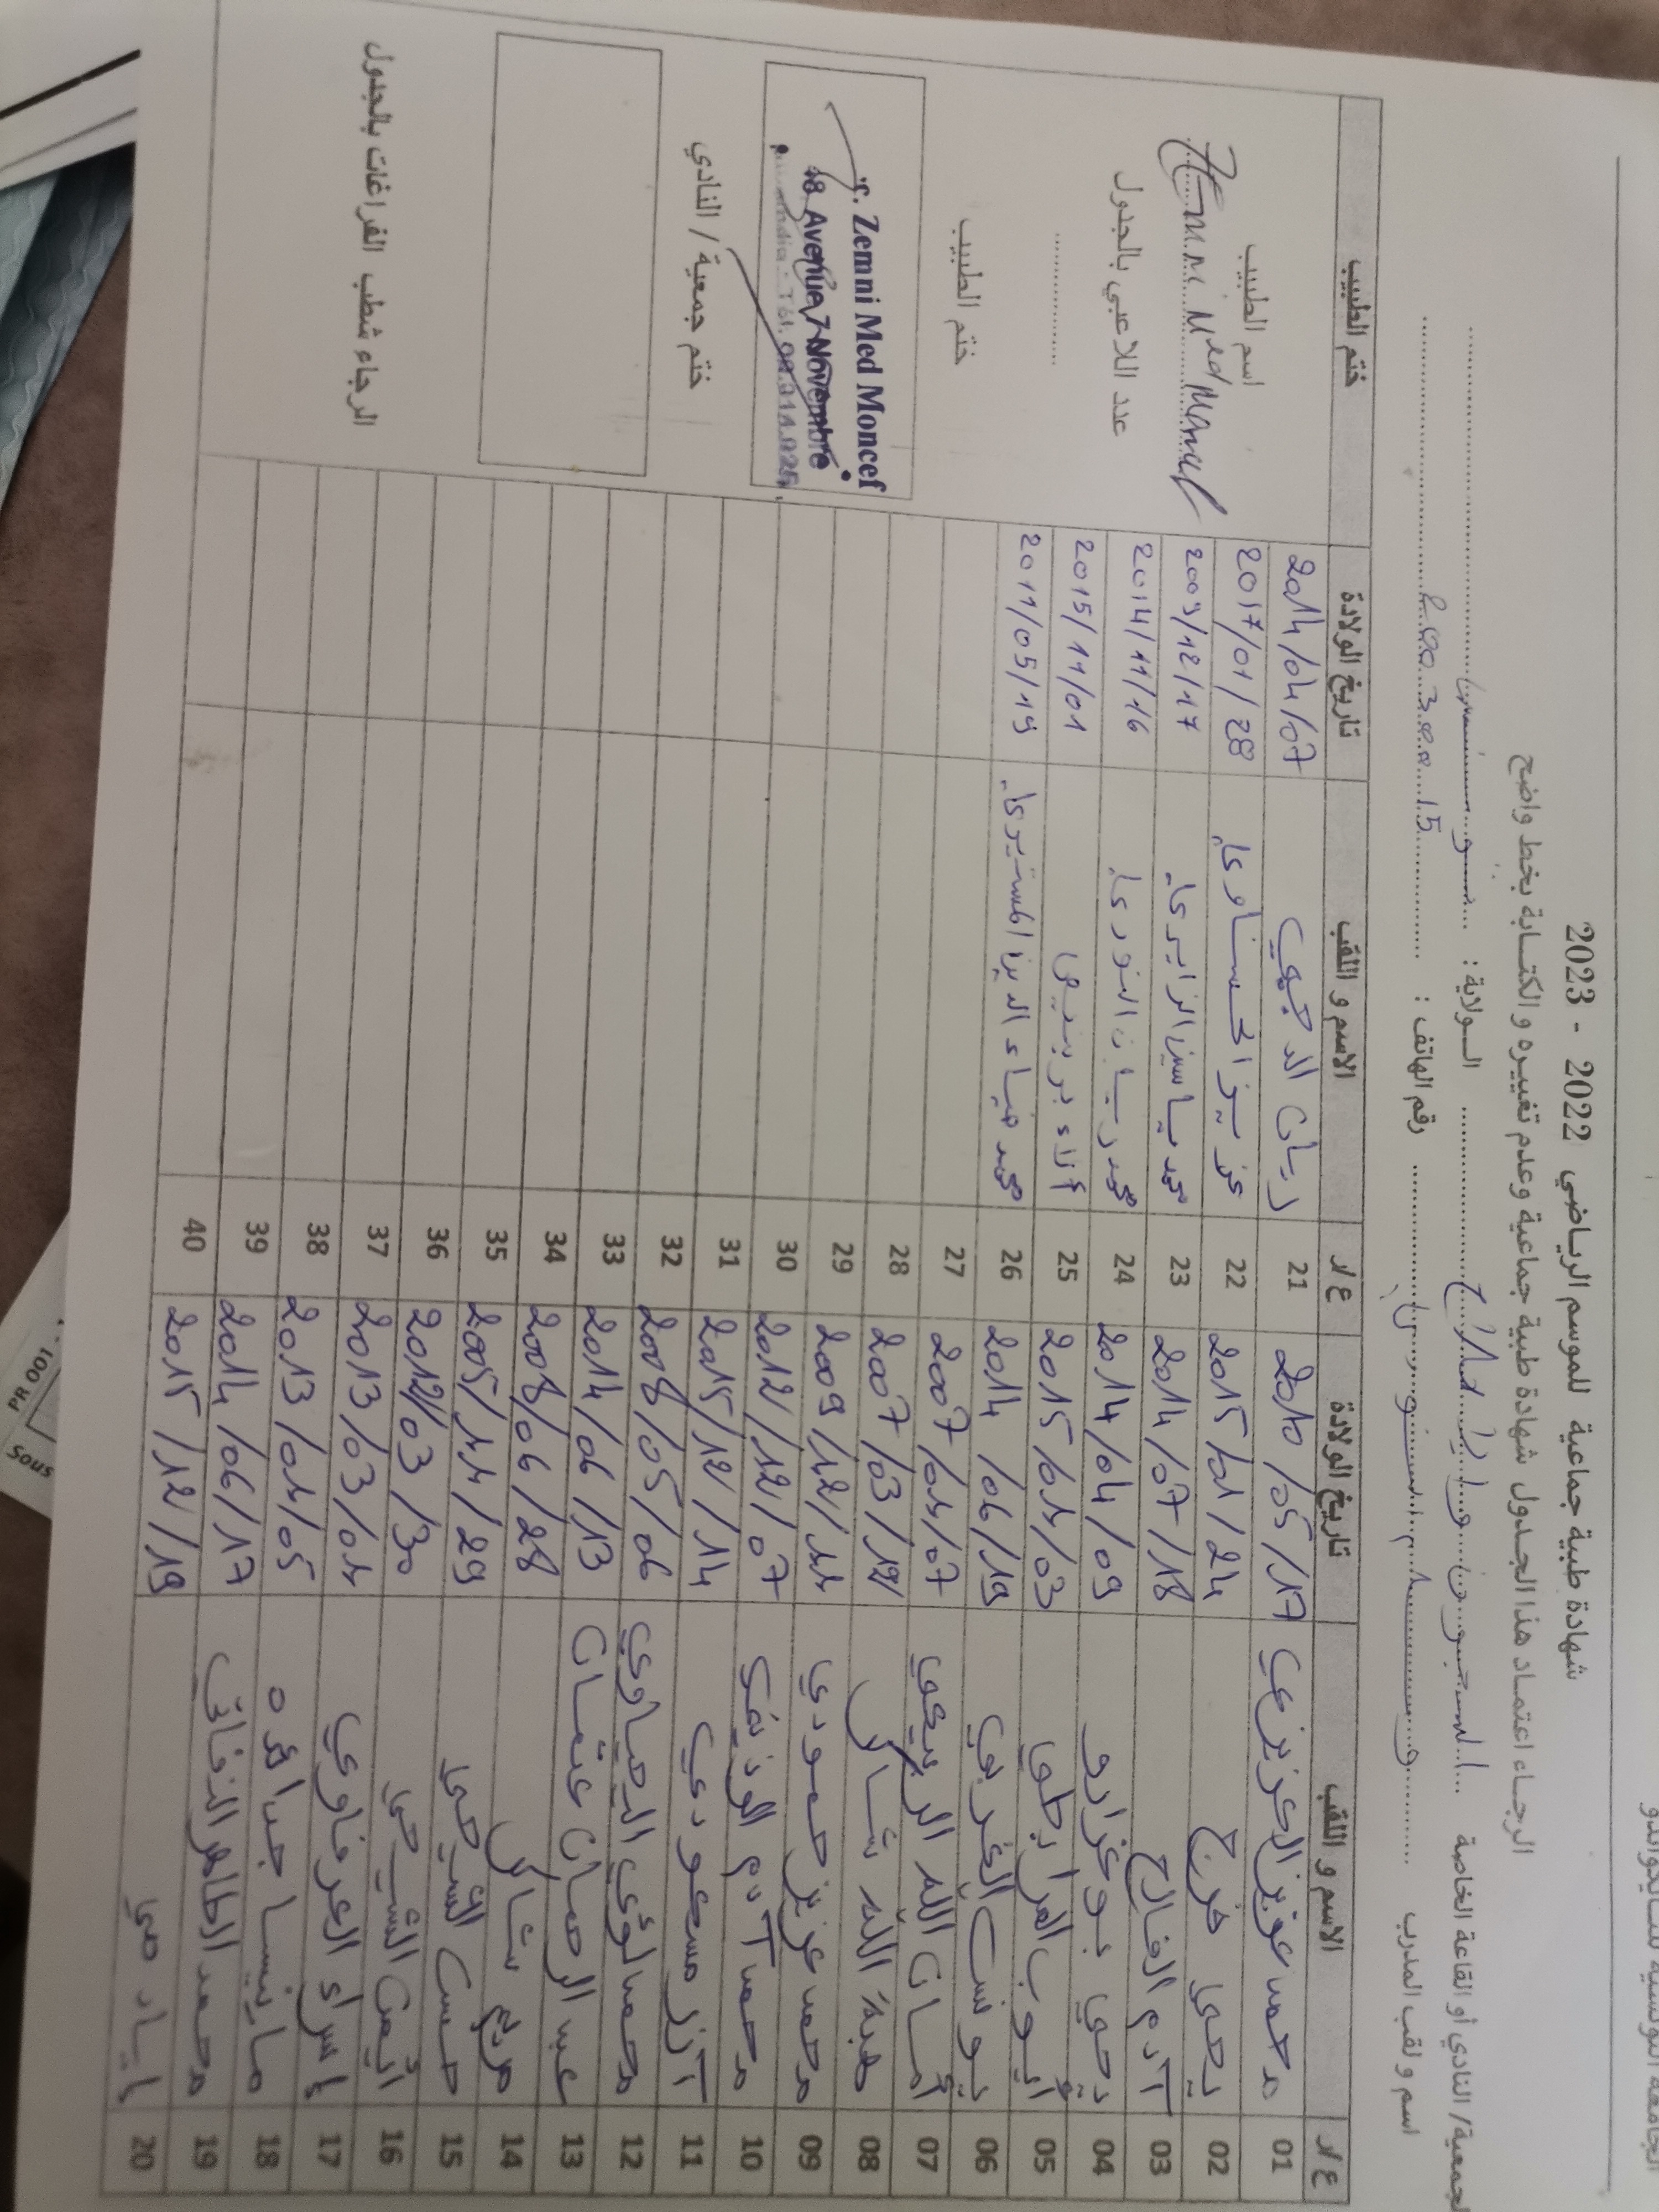 شهادة طبية جماعية للموسم الرياضي 2022 - 2023
الرجاء اعتماد هذا الجدول شهادة طبية جماعية وعدم تغييره و الكتابة بخط واضح
الجمعية/ النادي أو القاعة الخاصة
الولاية :
اسم و لقب المدرب
رقم الهاتف :
ع/د الاسم و اللقب تاريخ الولادة ع/د الاسم و اللقب تاريخ الولادة ختم الطبيب
01 محمد عزيز العزيزي 2010/05/17 21 ريان الدجبي 2014/04/07
02 يحي فرج 2015/01/24 22 عزيز الحسناوي 2017/01/28
03 آدم الفالح 2014/07/18 23 محمد ياسين الزايري 2009/12/17
04 يحي بوغزارو 2014/04/09 24 محمد ريان النوري 2014/11/16
05 أيوب 2015/01/03 25 آلاء 2015/11/01
06 يوسف الغربي 2014/06/19 26 محمد ضياء الدين المستيري 2011/05/19
07 أمان الله الربيعي 2007/01/07 27
08 هبة الله شابي 2007/03/12 28
09 محمد عزيز حمودي 2009/12/11 29
10 محمد آدم 2012/12/07 30
11 آزر مسعودي 2015/12/14 31
12 محمد لؤي العياوي 2008/05/06 32
13 عبد الرحمان عثمان 2014/06/13 33
14 مريم شابي 2008/06/28 34
15 حسن الشيحي 2005/11/29 35
16 أيمن الشيحي 2012/03/30 36
17 إسراء العرفاوي 2013/03/01 37
18 2013/01/05 38
19 محمد الطاهر 2014/06/17 39
20 إياد 2015/12/19 40
اسم الطبيب
عدد اللاعبي بالجدول
ختم الطبيب
Zemni Med Moncef
48 Avenue 7 Novembre
ختم جمعية / النادي
الرجاء شطب الفراغات بالجدول
PR 001
Sous